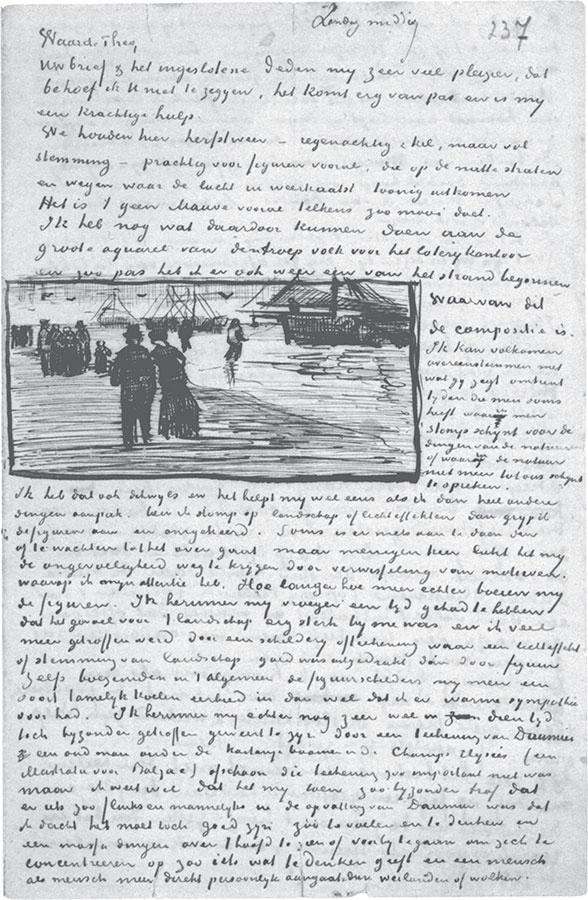 Zondag middag
237
Waarde Theo,
Uw brief & het ingeslotene deden my zeer veel plezier, dat
behoef ik U niet te zeggen, het komt erg van pas en is my
een krachtige hulp.
We houden hier herfstweer – regenachtig & kil, maar vol
stemming – prachtig voor figuren vooral, die op de natte straten
en wegen waar de lucht in weerkaatst toonig uitkomen
Het is 't geen Mauve vooral telkens zoo mooi doet.
Ik heb nog wat daardoor kunnen doen aan de
groote aquarel van den troep volk voor het loterykantoor
en zoo pas heb ik er ook weer een van het strand begonnen
Waarvan dit
de compositie is.
Ik kan volkomen
overeenstemmen met
wat gy zegt omtrent
tyden die men soms
heeft waarin men
stomp schynt voor de
dingen van de natuur
of waarin de natuur
niet meer tot ons schynt
te spreken.
Ik heb dat ook dikwyls en het helpt my wel eens als ik dan heel andere
dingen aanpak. ben ik stomp op landschap of lichteffekten dan gryp ik
de figuren aan en omgekeerd. Soms is er niets aan te doen dan
af te wachten tot het over gaat maar menigen keer lukt het my
de ongevoeligheid weg te krygen door verwisseling van motieven.
waarop ik myn attentie heb. Hoe langer hoe meer echter boeien my
de figuren. Ik herinner my vroeger een tyd gehad te hebben
dat het gevoel voor 't landschap erg sterk by me was en ik veel
meer getroffen werd door een schildery of teekening waar een lichteffekt
of stemming van landschap goed was uitgedrukt dan door figuur
Zelfs boezemden in 't algemeen de figuurschilders my meer een
soort tamelyk koelen eerbied in dan wel dat ik er warme sympathie
voor had. Ik herinner my echter nog zeer wel in dien tyd
toch byzonder getroffen geweest te zyn door een teekening van Daumier
een oud man onder de kastanje boomen in de Champs Elysées (een
illustratie voor Balzac) ofschoon die teekening zoo important niet was
maar ik weet wel dat het my toen zoo byzonder trof dat
er iets zoo flinks en mannelyks in de opvatting van Daumier was dat
ik dacht het moet toch goed zyn zóó te voelen en te denken en
een massa dingen over 't hoofd te zien of voorby te gaan om zich te
concentreeren op zoo iets wat te denken geeft en een mensch
als mensch meer direkt persoonlyk aangaat dan weilanden of wolken.